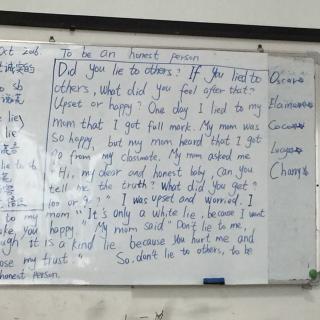 Oct 2016. To be an honest person
Did you lie to others? If you lied to
others, What did you feel after that?
Upset or happy? One day I lied to my
mom that I got full mark. My mom was
so happy, but my mom heard that I got
from my classmate. My mom asked me
"Hi, my dear and honest baby, can you
tell me the truth? What did you get?
100 or" I was upset and worried. I
to my mom "It's only a white lie, because I want
you happy" My mom said "Don't lie to me,
it is a kind lie because you hurt me and
my trust." So, don't lie to others, to be
honest person.
诚实的
to sb
lie
lie
to
Oscar
Elaine
Coco
Lucy
Cherry